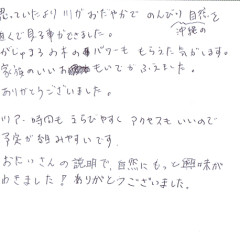 思っていたより川がおだやかで のんびり 自然を
沖縄の
近くで見る事ができました。
がじゅまるの木のパワーも もらえた気がします。
家族のいいおもいでがふえました。
ありがとうございました。
ツアー時間も えらびやすく アクセスも いいので
予定が組みやすいです。
おにいさんの説明で、自然にもっと興味が
わきました！ありがとうございました。